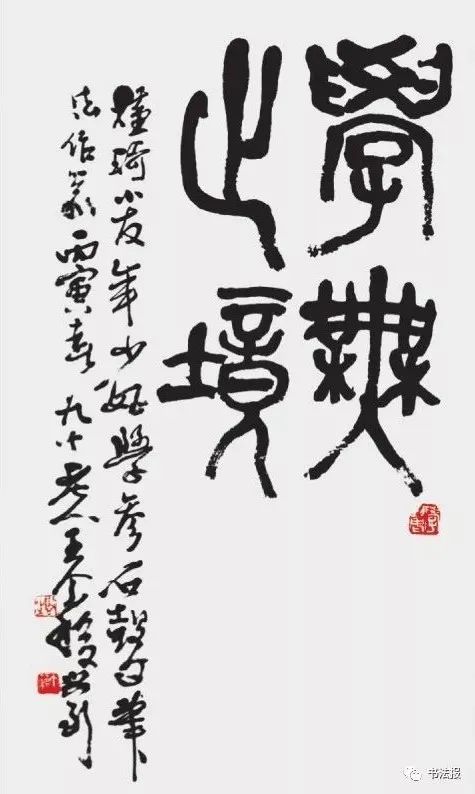 學無
止境
琦小友年少好學參石鼓文筆
法作篆丙寅春九十老人王个簃
书法报